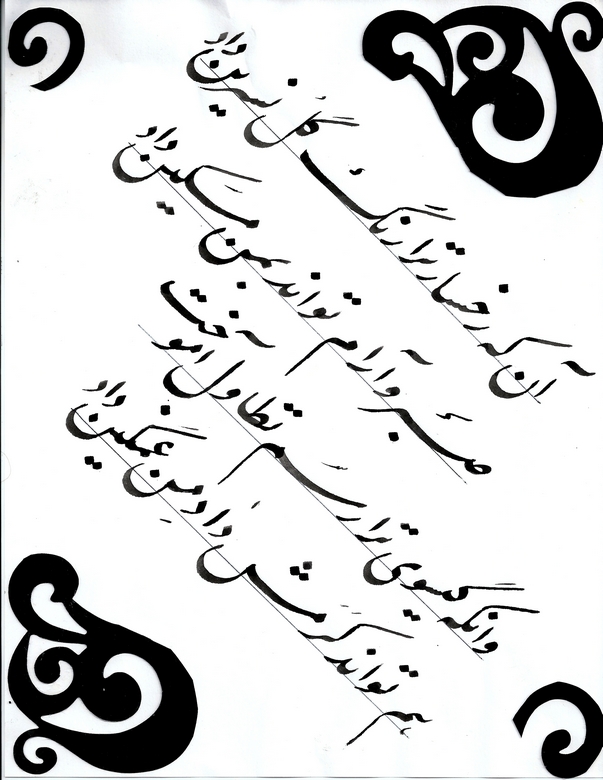 آن که رخسار ترا رنگ گل نسرین داد
صبر و آرام تواند بمن مسکین داد
وانکه گیسوی ترا رسم تطاول آموخت
هم تواند کرمش داد من غمگین داد